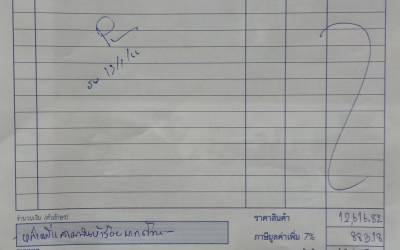 13/1/66
จำนวนเงิน (ตัวอักษร)
ราคาสินค้า 12,616.82
-หนึ่งหมื่นสามพันห้าร้อยบาทถ้วน-
ภาษีมูลค่าเพิ่ม 7% 883.18